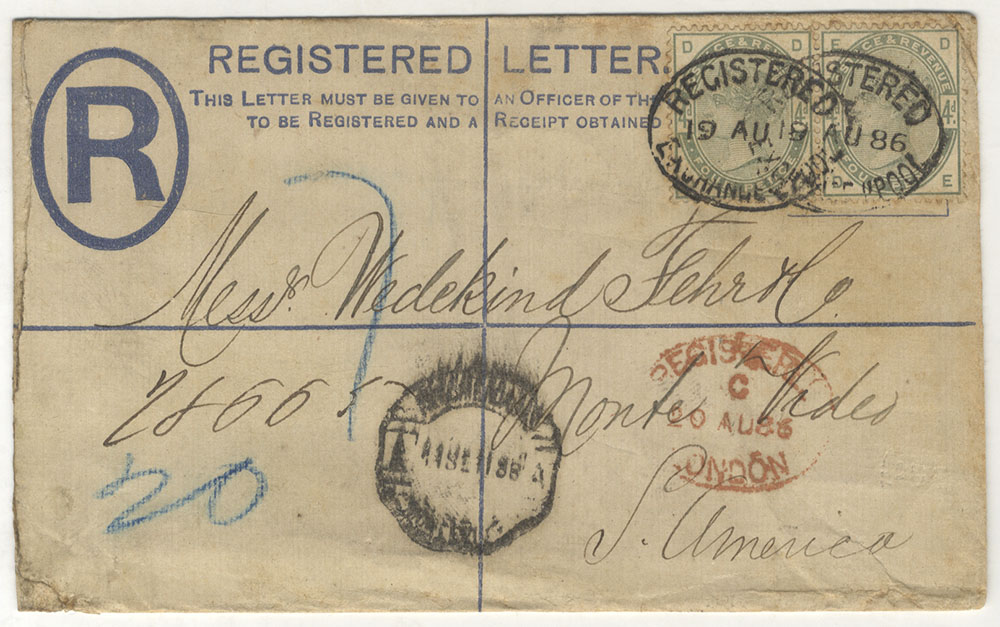 R
REGISTERED LETTER.
THIS LETTER MUST BE GIVEN TO AN OFFICER OF THE
TO BE REGISTERED AND A RECEIPT OBTAINED
D D
CE & REVENUE
E D
CE & REVENUE
4d.
E
REGISTERED
19 AU
EXCHANGE
STERED
19 AU 86
POOL
Messrs Wedekind Fehr & Co
7
Monte Video
S. America
20
REGISTERED
C
20 AU 86
LONDON